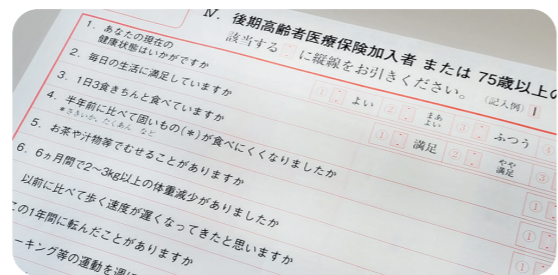 Ⅳ. 後期高齢者医療保険加入者 または 75歳以上の
該当する に縦線をお引きください。 (記入例)
1. あなたの現在の
健康状態はいかがですか
① よい ② まあよい ③ ふつう ④
2. 毎日の生活に満足していますか
① 満足 ② やや満足 ③
3. 1日3食きちんと食べていますか
4. 半年前に比べて固いもの(*)が食べにくくなりましたか
*さきいか、たくあん など
5. お茶や汁物等でむせることがありますか
6. 6ヵ月間で2〜3kg以上の体重減少がありましたか
以前に比べて歩く速度が遅くなってきたと思いますか
この1年間に転んだことがありますか
ーキング等の運動を週に